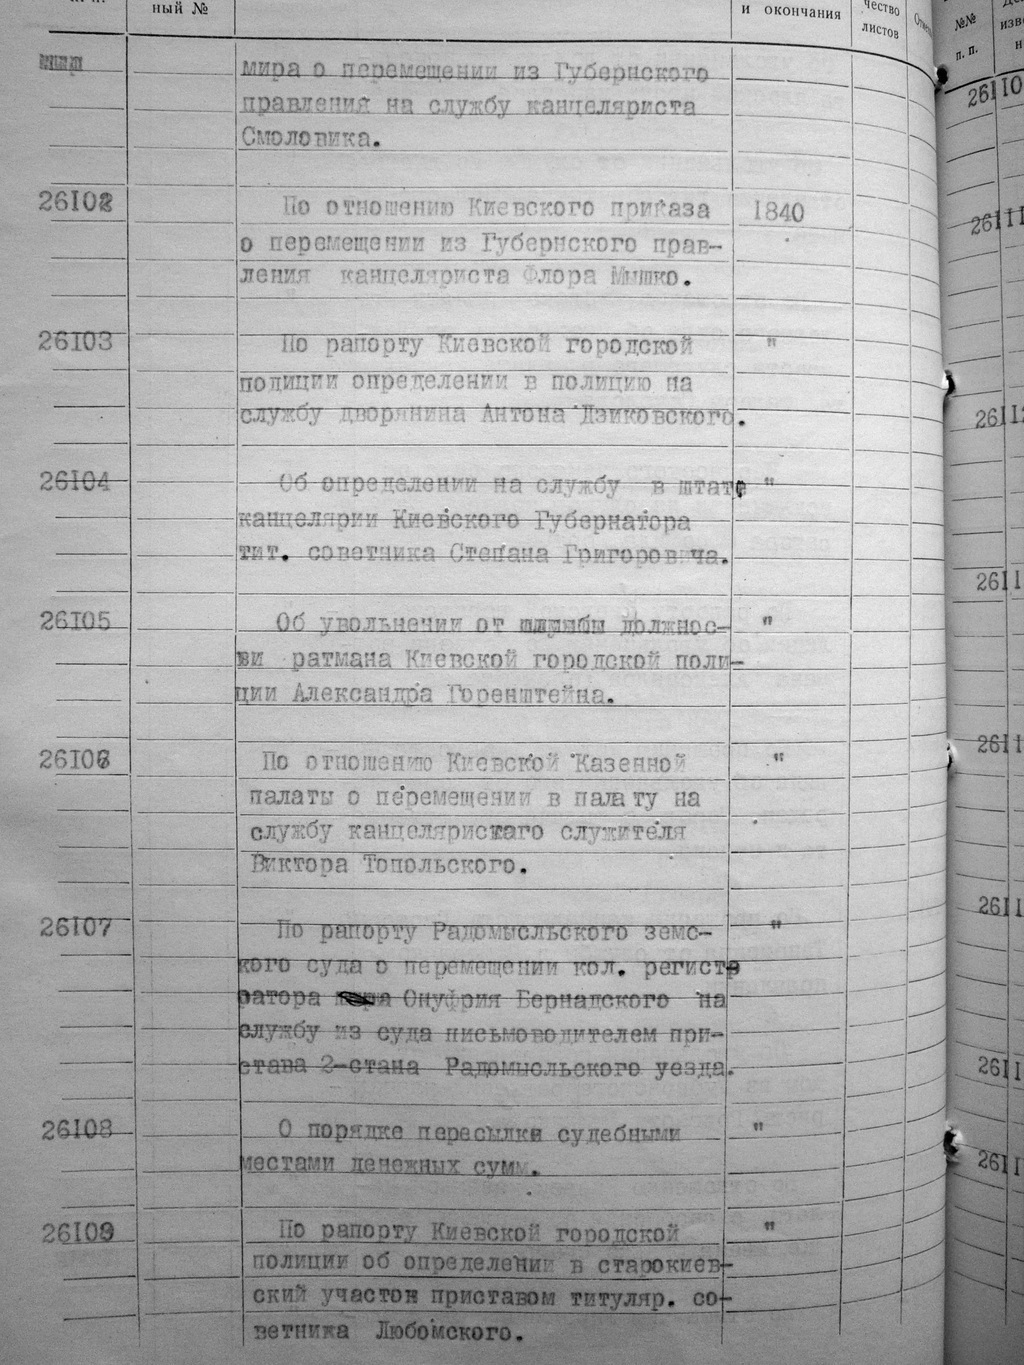 ный №
и окончания
чество
листов
№№
п. п.
мира о перемещении из Губернского
правления на службу канцеляриста
Смоловика.
26I02 По отношению Киевского приказа 1840
о перемещении из Губернского прав-
ления канцеляриста Флора Мышко.
26I03 По рапорту Киевской городской "
полиции определении в полицию на
службу дворянина Антона Дзиковского.
26I04 Об определении на службу в штате "
канцелярии Киевского Губернатора
тит. советника Степана Григоровича.
26I05 Об увольнении от службы должнос- "
ви ратмана Киевской городской поли-
ции Александра Горенштейна.
26I06 По отношению Киевской Казенной "
палаты о перемещении в палату на
службу канцеляристаго служителя
Виктора Топольского.
26I07 По рапорту Радомысльского земс- "
кого суда о перемещении кол. регистр
ратора Онуфрия Бернадского на
службу из суда письмоводителем при-
става 2-стана Радомысльского уезда.
26I08 О порядке пересылки судебными "
местами денежных сумм.
26I09 По рапорту Киевской городской "
полиции об определении в старокиев-
ский участок приставом титуляр. со-
ветника Любомского.